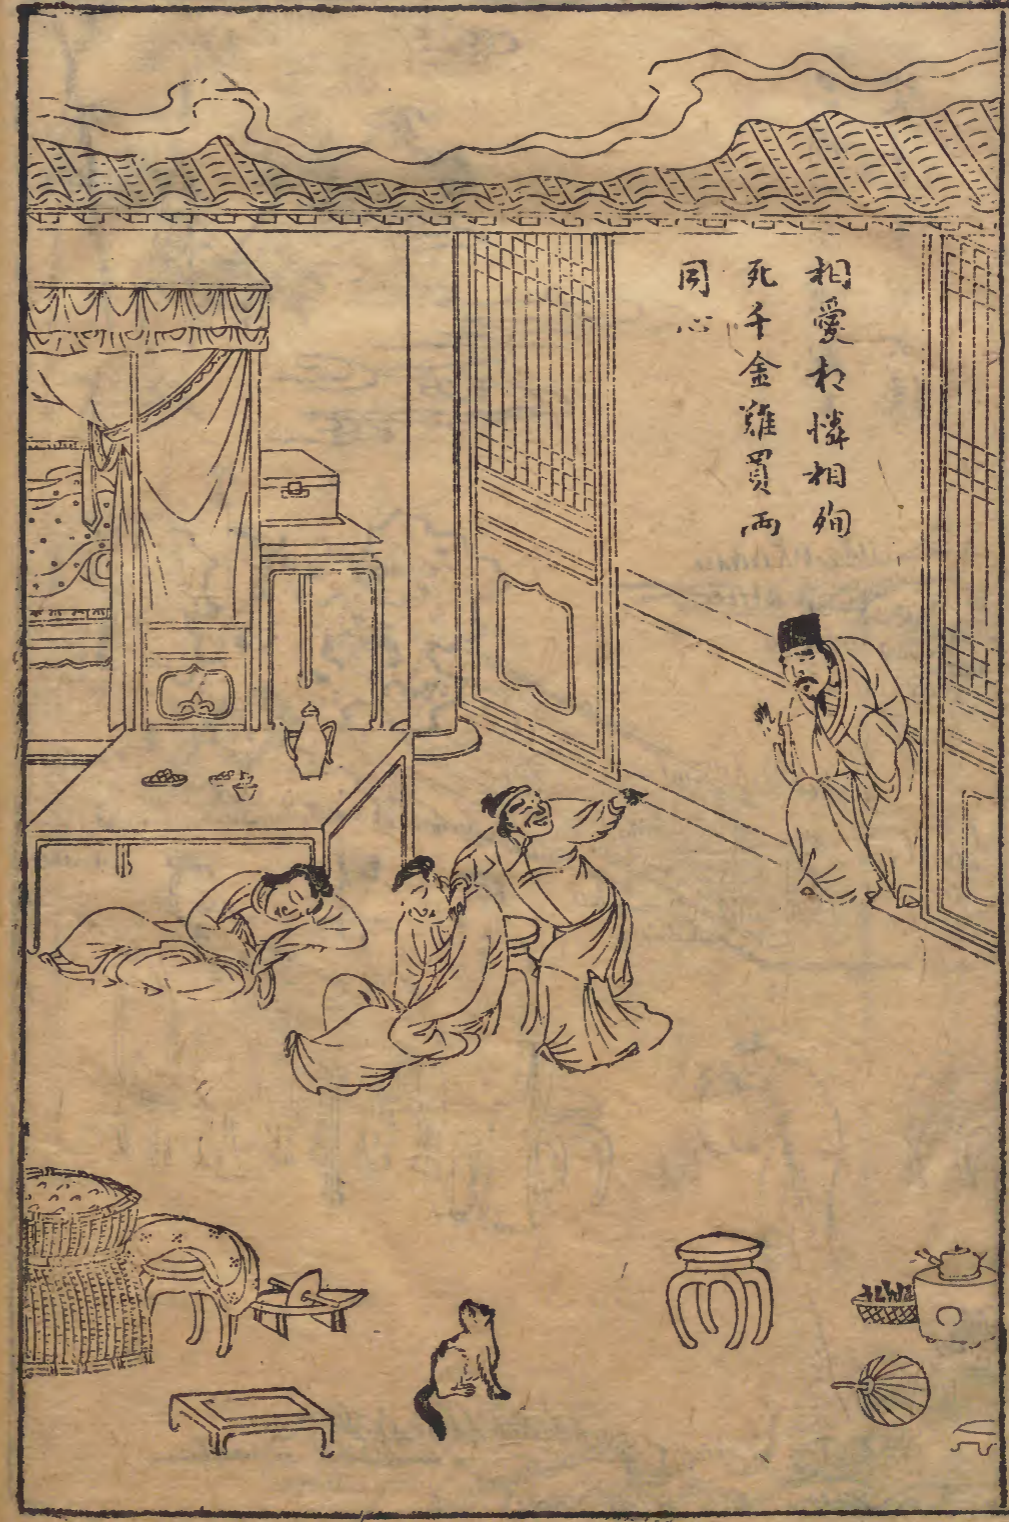 相愛相憐相殉
死千金難買兩
同心